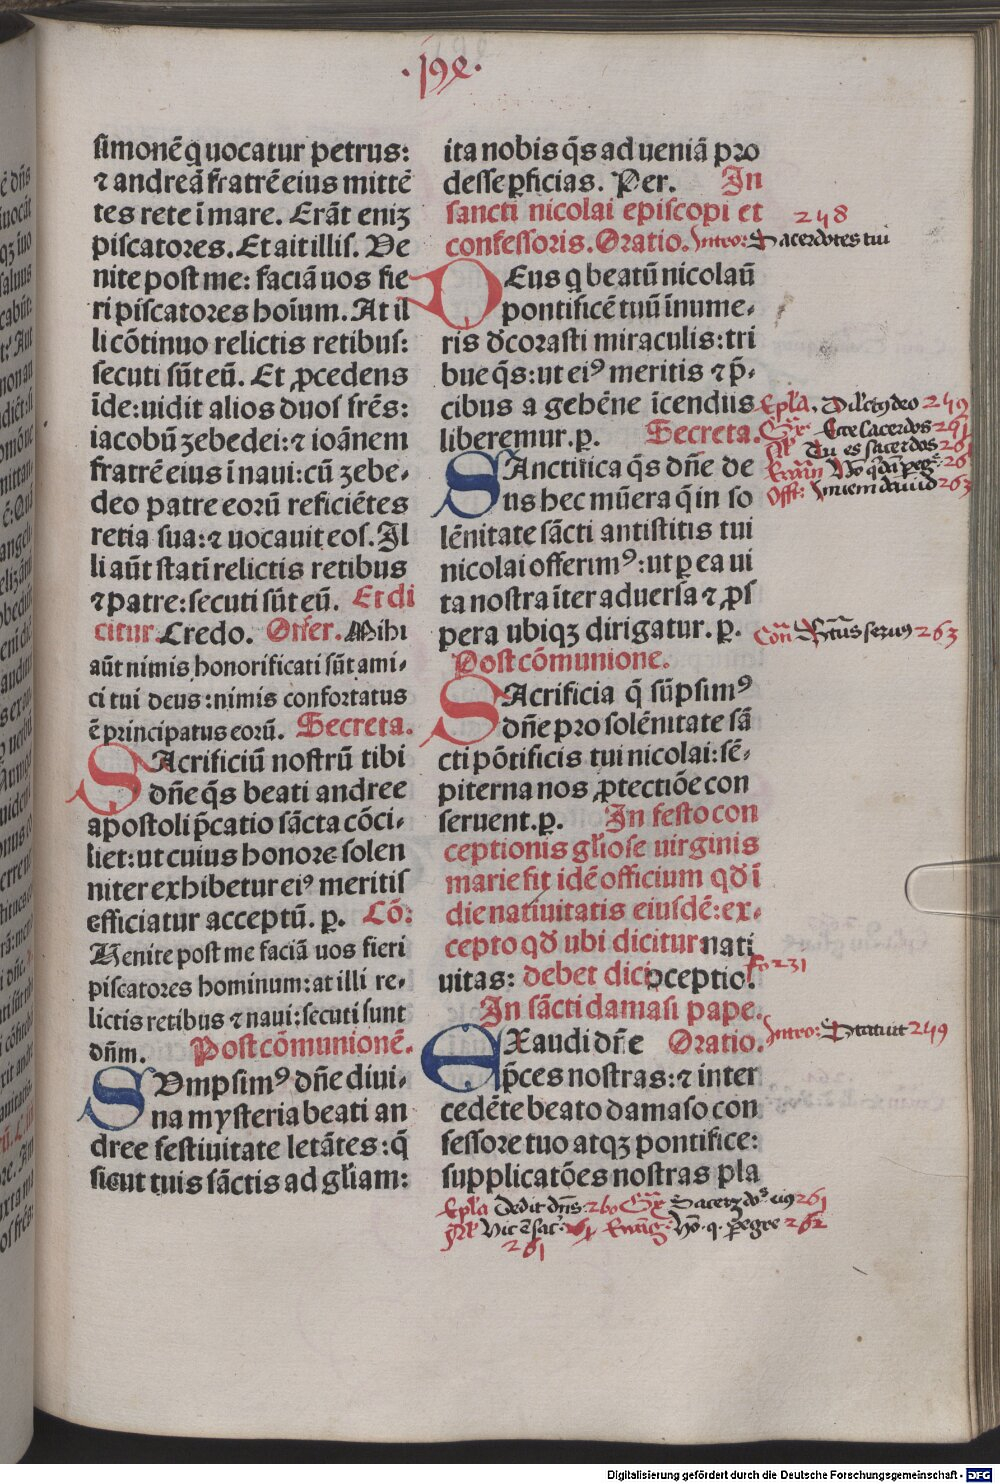 simonē q̄ uocatur petrus:
⁊ andreā fratrē eius mittē
tes rete ī mare. Erāt eniʒ
piscatores. Et ait illis. Ve
nite post me: faciā uos fie
ri piscatores hoīum. At il
li cōtinuo relictis retibus:
secuti sūt eū. Et ꝓcedens
īde: uidit alios duos frēs:
iacobū ʒebedei: ⁊ ioānem
fratrē eius ī naui: cū ʒebe-
deo patre eorū reficiētes
retia sua: ⁊ uocauit eos. Il
li aūt statī relictis retibus
⁊ patre: secuti sūt eū. Et di
citur. Credo. Offer. Mihi
aūt nimis honorificati sūt ami-
ci tui deus: nimis confortatus
ē principatus eorū. Secreta.
SAcrificiū nostrū tibi
dn̄e q̄s beati andree
apostoli p̄catio sācta cōci-
liet: ut cuius honore solen
niter exhibetur eiꝰ meritis
efficiatur acceptū. ꝑ. Cō:
Venite post me faciā uos fieri
piscatores hominum: at illi re-
lictis retibus ⁊ naui: secuti sunt
dn̄m. Post cōmunionē.
SVmpsimꝰ dn̄e diui-
na mysteria beati an
dree festiuitate letātes: q̄
sicut tuis sāctis ad gl̄iam:
ita nobis q̄s ad ueniā pro
desse ꝑficias. Per. In
sancti nicolai episcopi et
248
confessoris. Oratio. Intro: Sacerdotes tui
DEus q̄ beatū nicolaū
pontificē tuū īnume-
ris dcorasti miraculis: tri
bue q̄s: ut eiꝰ meritis ⁊ p̄-
cibus a gehēne īcendiis
liberemur. ꝑ. Secreta.
Ep̄la. 249
Ecce sacerdos 291
Tu es sacerdos
SAnctifica q̄s dn̄e de
us hec mūera q̄ in so
lēnitate sācti antistitis tui
nicolai offerimꝰ: ut ꝑ ea ui
ta nostra īter aduersa ⁊ ꝓs
pera ubiqʒ dirigatur. ꝑ.
263
Post cōmunione.
SAcrificia q̄ sūpsimꝰ
dn̄e pro solēnitate sā
cti pōtificis tui nicolai: sē-
piterna nos ꝓtectiōe con
seruent. ꝑ. In festo con
ceptionis gl̄iose uirginis
marie fit idē officium qd̄ ī
die natiuitatis eiusdē: ex-
cepto qd̄ ubi dicitur nati
uitas: debet dici ↄceptio. fo 231
In sācti damasi pape.
EXaudi dn̄e Oratio. Intro: Statuit 249
p̄ces nostras: ⁊ inter
cedēte beato damaso con
fessore tuo atqʒ pontifice:
supplicatōes nostras pla
Ep̄la Dedit dn̄s 260 261
262
261
Digitalisierung gefördert durch die Deutsche Forschungsgemeinschaft - DFG